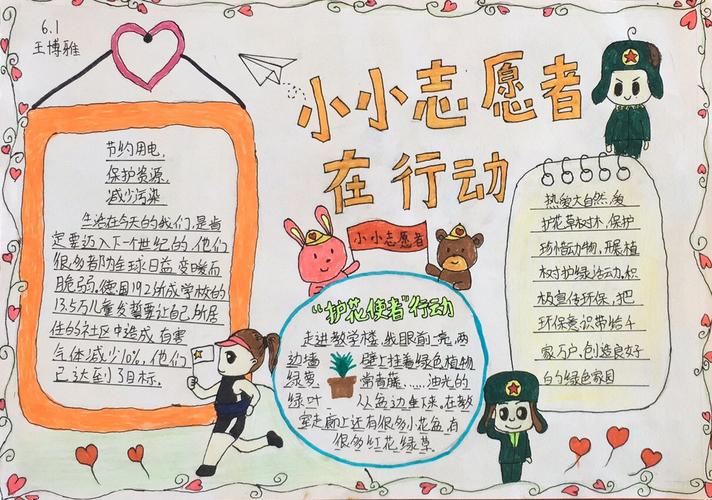 6.1
王博雅
小小志愿者
在行动
节约用电,
保护资源,
减少污染
生活在今天的我们,是肯
定要迈入下一个世纪的,他们
很多都为全球日益变暖而
脆弱,德国192所成学校的
13.5万儿童发誓要让自己所居
住的社区中造成有害
气体减少10%,他们
已达到了目标.
小小志愿者
“护花使者”行动
走进教学楼,我眼前一亮,两
边墙壁上挂着绿色植物
绿萝 常青藤……油光的
绿叶 从盆边垂下来.在教
室走廊上还有很多小花盆,有
很多红花绿草
热爱大自然,爱
护花草树木,保护
珍惜动物,开展植
树护绿活动,积
极宣传环保,把
环保意识带给千
家万户,创造良好
的绿色家园